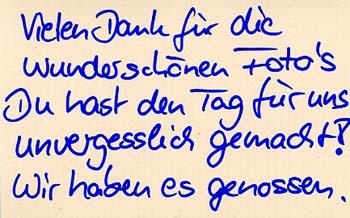 Vielen Dank für die
wunderschönen Foto's
Du hast den Tag für uns
unvergesslich gemacht!
Wir haben es genossen.